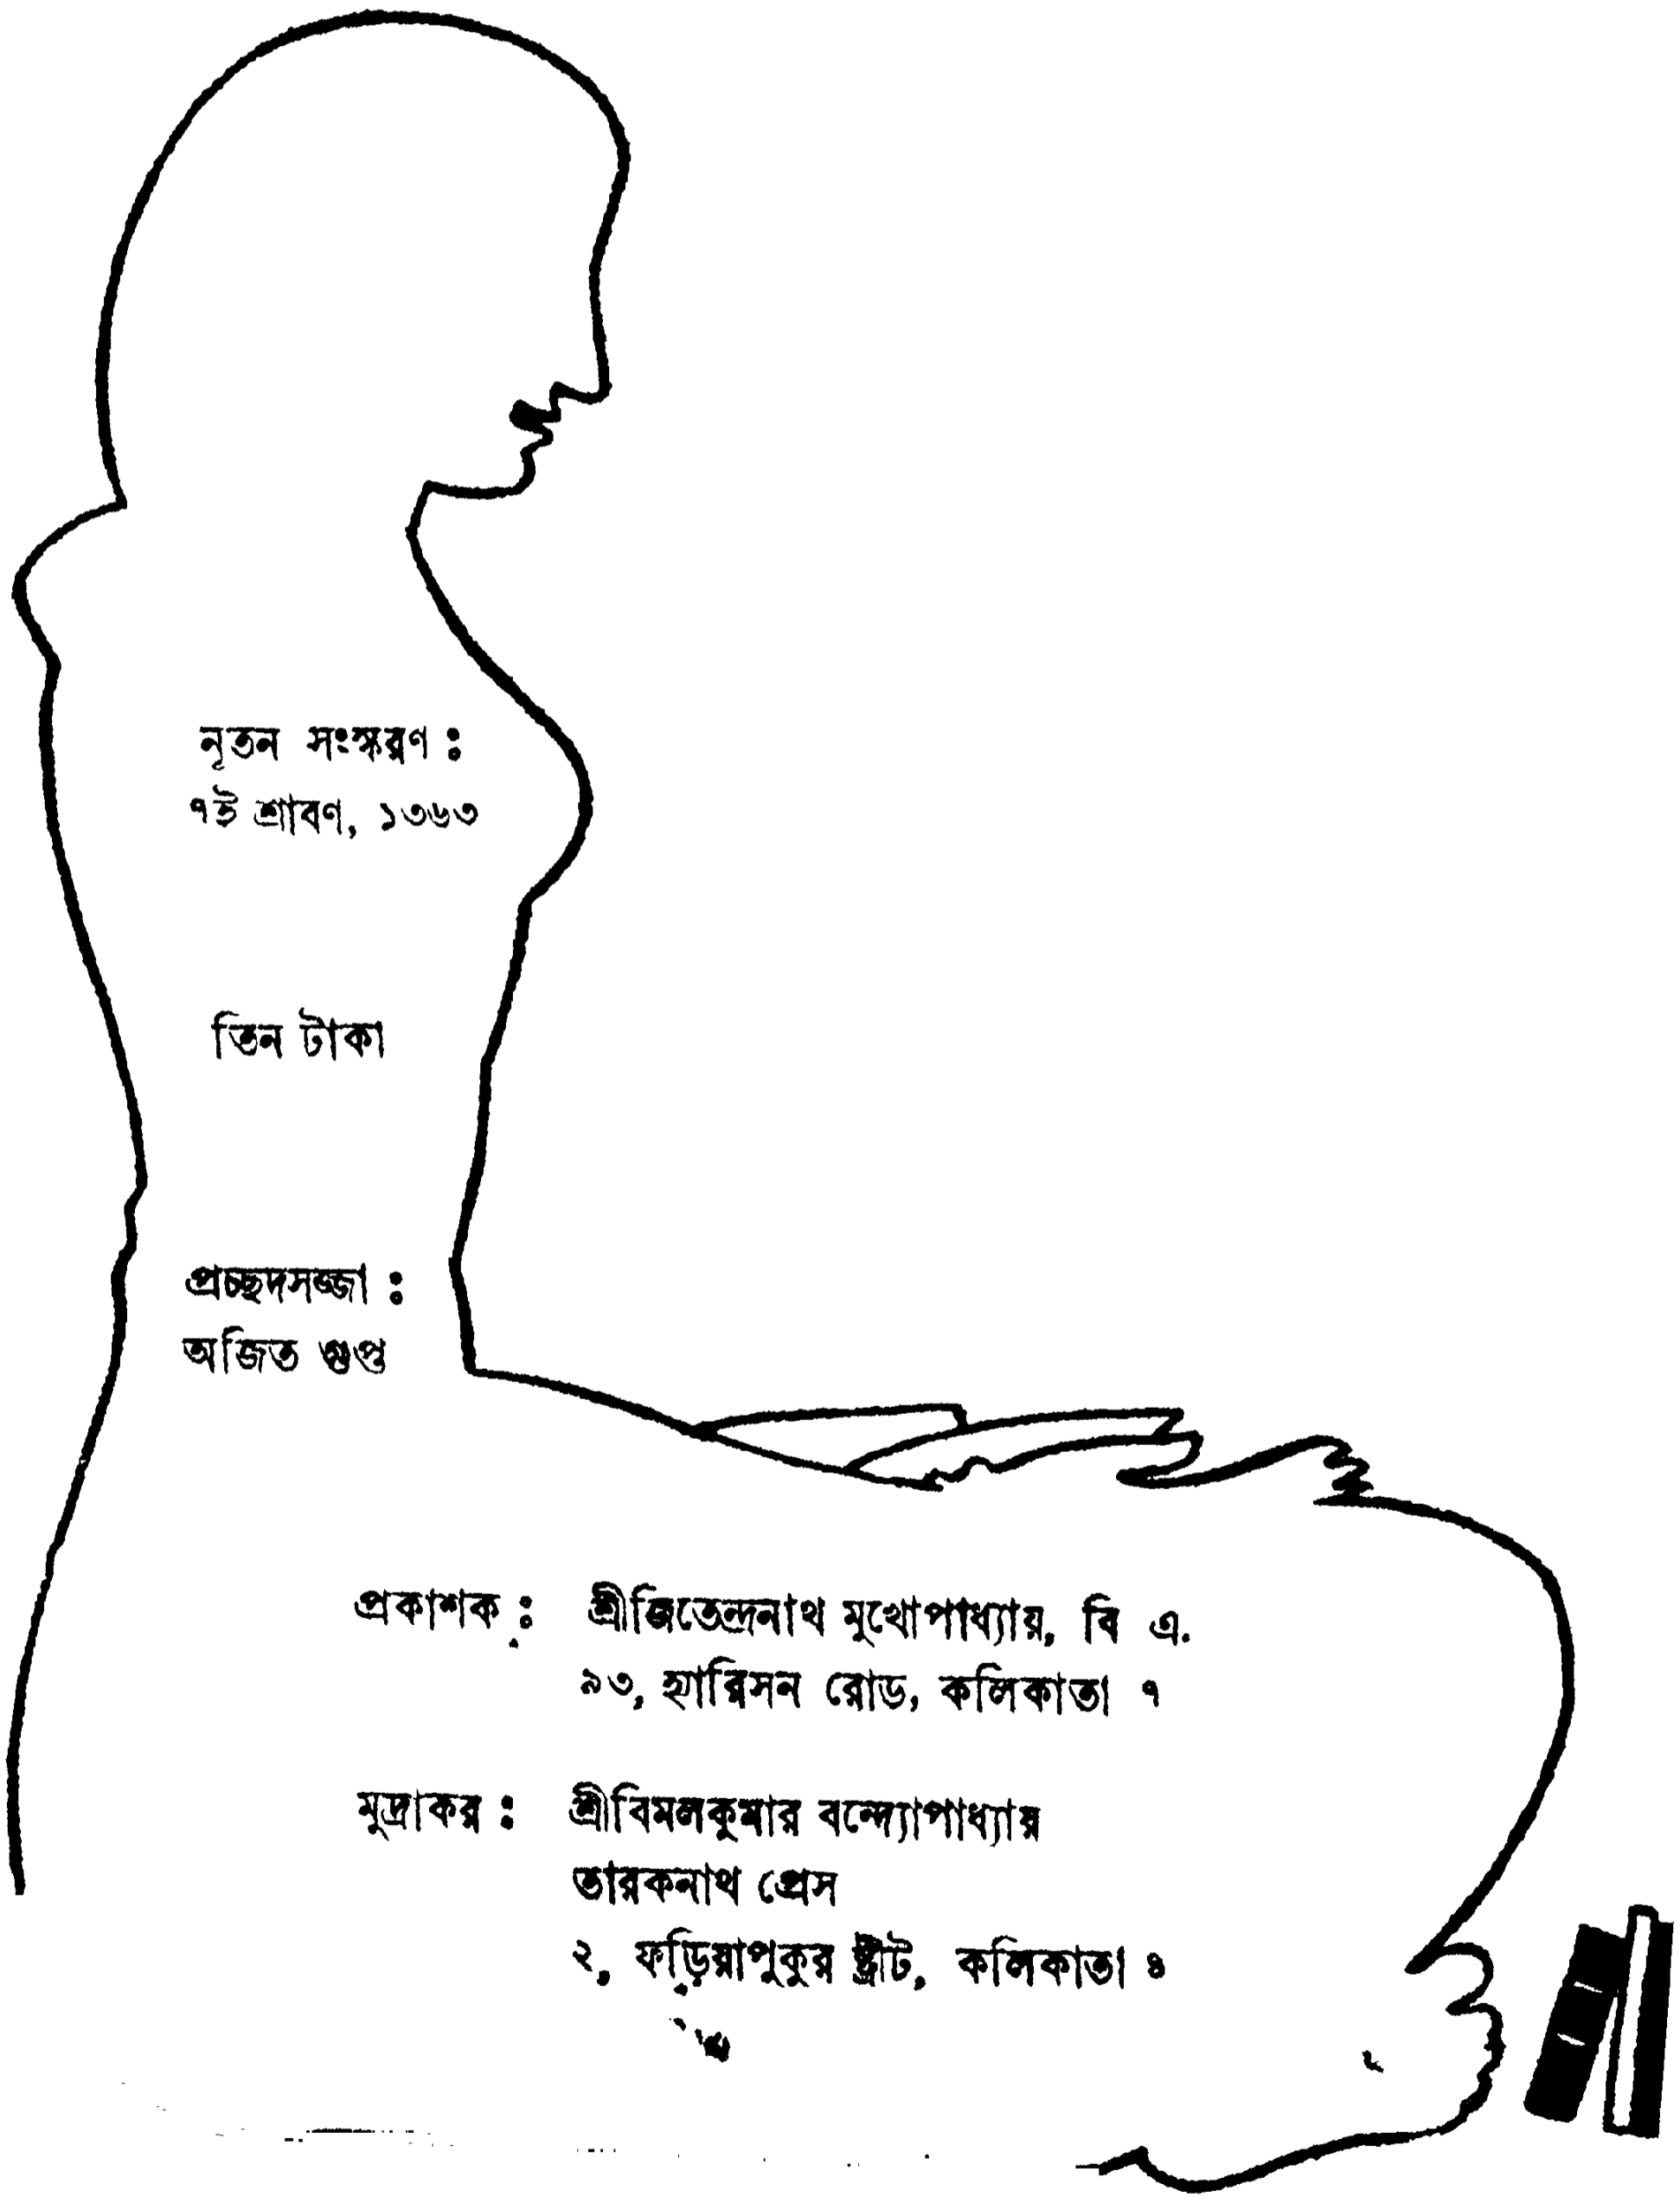 নূতন সংস্করণ :
৭ই শ্রাবণ, ১৩৬৩
তিন টাকা
প্রচ্ছদসজ্জা :
অজিত গুপ্ত
প্রকাশক : শ্রীজিতেন্দ্রনাথ মুখোপাধ্যায়, বি এ.
৯৩, হ্যারিসন রোড, কলিকাতা ৭
মুদ্রাকর : শ্রীবিমলকুমার বন্দ্যোপাধ্যায়
তারকনাথ প্রেস
২, ফড়িয়াপুকুর ষ্ট্রীট, কলিকাতা ৪